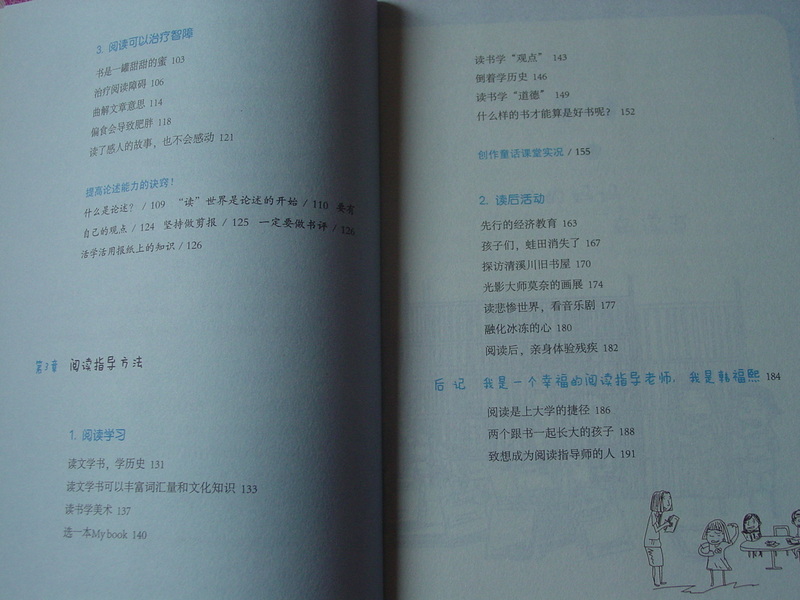 3. 阅读可以治疗智障
书是一罐甜甜的蜜 103
治疗阅读障碍 106
曲解文章意思 114
偏食会导致肥胖 118
读了感人的故事，也不会感动 121
提高论述能力的诀窍！
什么是论述？ / 109 “读”世界是论述的开始 / 110 要有
自己的观点 / 124 坚持做剪报 / 125 一定要做书评 / 126
活学活用报纸上的知识 / 126
第3章 阅读指导方法
1. 阅读学习
读文学书，学历史 131
读文学书可以丰富词汇量和文化知识 133
读书学美术 137
选一本My book 140
读书学“观点” 143
倒着学历史 146
读书学“道德” 149
什么样的书才能算是好书呢？ 152
创作童话课堂实况 / 155
2. 读后活动
先行的经济教育 163
孩子们，蛙田消失了 167
探访清溪川旧书屋 170
光影大师莫奈的画展 174
读悲惨世界，看音乐剧 177
融化冰冻的心 180
阅读后，亲身体验残疾 182
后 记 我是一个幸福的阅读指导老师，我是韩福熙 184
阅读是上大学的捷径 186
两个跟书一起长大的孩子 188
致想成为阅读指导师的人 191